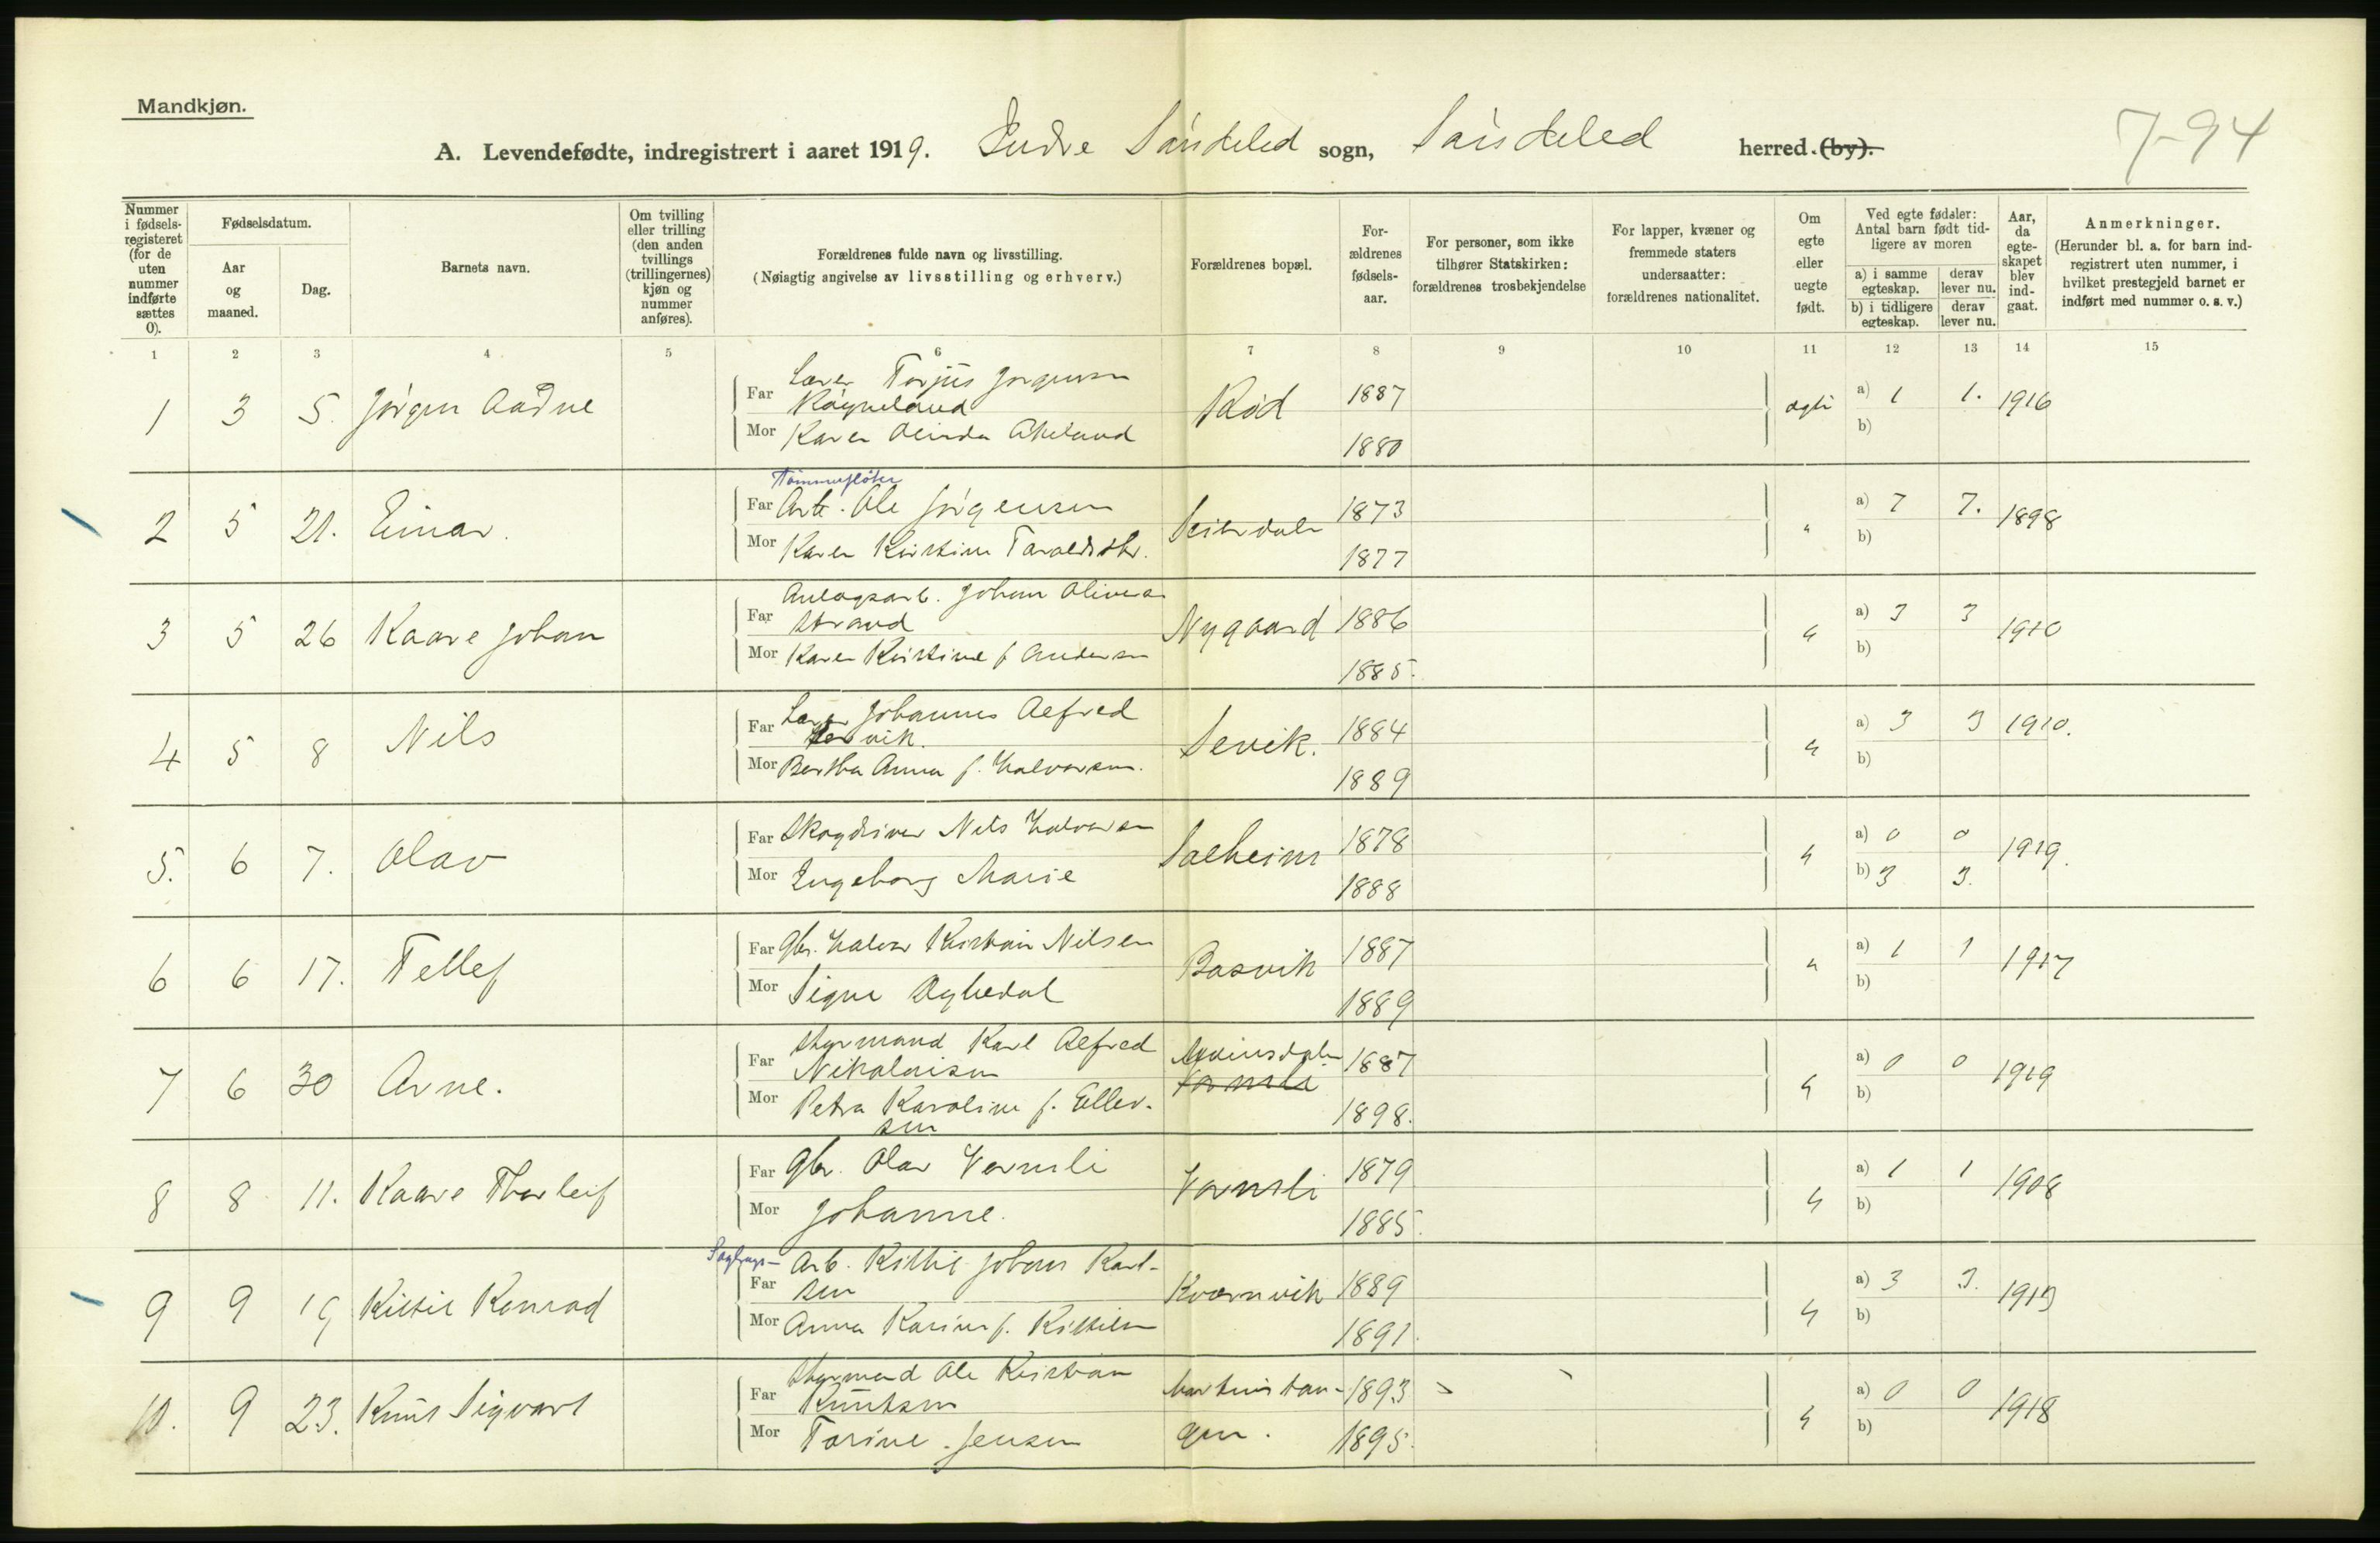 Mandkjøn.
A. Levendefødte, indregistrert i aaret 1919. Indre Søndeled sogn, Søndeled herred (by).
7-94
Nummer i fødselsregisteret (for de uten nummer indførte sættes 0).
Fødselsdatum.
Aar og maaned.
Dag.
Barnets navn.
Om tvilling eller trilling (den anden tvillings (trillingernes) kjøn og nummer anføres).
Forældrenes fulde navn og livsstilling.
(Nøiagtig angivelse av livsstilling og erhverv.)
Forældrenes bopæl.
Forældrenes fødselsaar.
For personer, som ikke tilhører Statskirken: forældrenes trosbekjendelse
For lapper, kvæner og fremmede staters undersaatter: forældrenes nationalitet.
Om egte eller uegte født.
Ved egte fødsler: Antal barn født tidligere av moren
a) i samme egteskap. derav lever nu.
b) i tidligere egteskap. derav lever nu.
Aar, da egteskapet blev indgaat.
Anmerkninger.
(Herunder bl. a. for barn indregistrert uten nummer, i hvilket prestegjeld barnet er indført med nummer o. s. v.)
1 2 3 4 5 6 7 8 9 10 11 12 13 14 15
1 3 5. Jørgen Aadne Far Lærer Torjus Jørgensen Røgneland Rød 1887 ægte a) 1 1. 1916
Mor Karen Olinda Akeland 1880 b)
2 5 21. Einar. Far Tømmerfløter Arb. Ole Jørgensen Seierdalen 1873 " a) 7 7. 1898
Mor Karen Kirstine Taraldsdtr. 1877 b)
3 5 26 Kaare Johan Far Anlægsarb. Johan Oliversen Strand Nygaard 1886 " a) 3 3 1910
Mor Karen Kirstine f. Andersen 1885. b)
4 5 8 Nils Far Lærer Johannes Alfred Sevik. Sevik. 1884 " a) 3 3 1910.
Mor Bertha Anna f. Halvorsen. 1889 b)
5. 6 7. Olav Far Skogdriver Nils Halvorsen Solheim 1878 " a) 0 0 1919.
Mor Ingeborg Marie 1888 b) 3 3.
6 6 17. Tellef Far Gbr. Halvor Kristian Nilsen Bosvik 1887 " a) 1 1 1917
Mor Signe Oghedal 1889 b)
7 6 30 Arne. Far Styrmand Karl Alfred Nikolaisen Vormli 1887 " a) 0 0 1919
Mor Petra Karoline f. Ellevsen 1898. b)
8 8 11. Kaare Thorleif Far Gbr. Olav Vormli Vormli 1879 " a) 1 1 1908
Mor Johanne. 1885. b)
9 9 19 Kittil Konrad Far Sagbruks- Arb. Kittil Johan Karlsen Kvernvik 1889 " a) 3 3. 1913
Mor Anna Karine f. Kittilsen 1891. b)
10. 9 23. Knut Sigvart Far Styrmand Ole Kristian Knutsen 1893 " a) 0 0 1918
Mor Torine Jensen 1895. b)